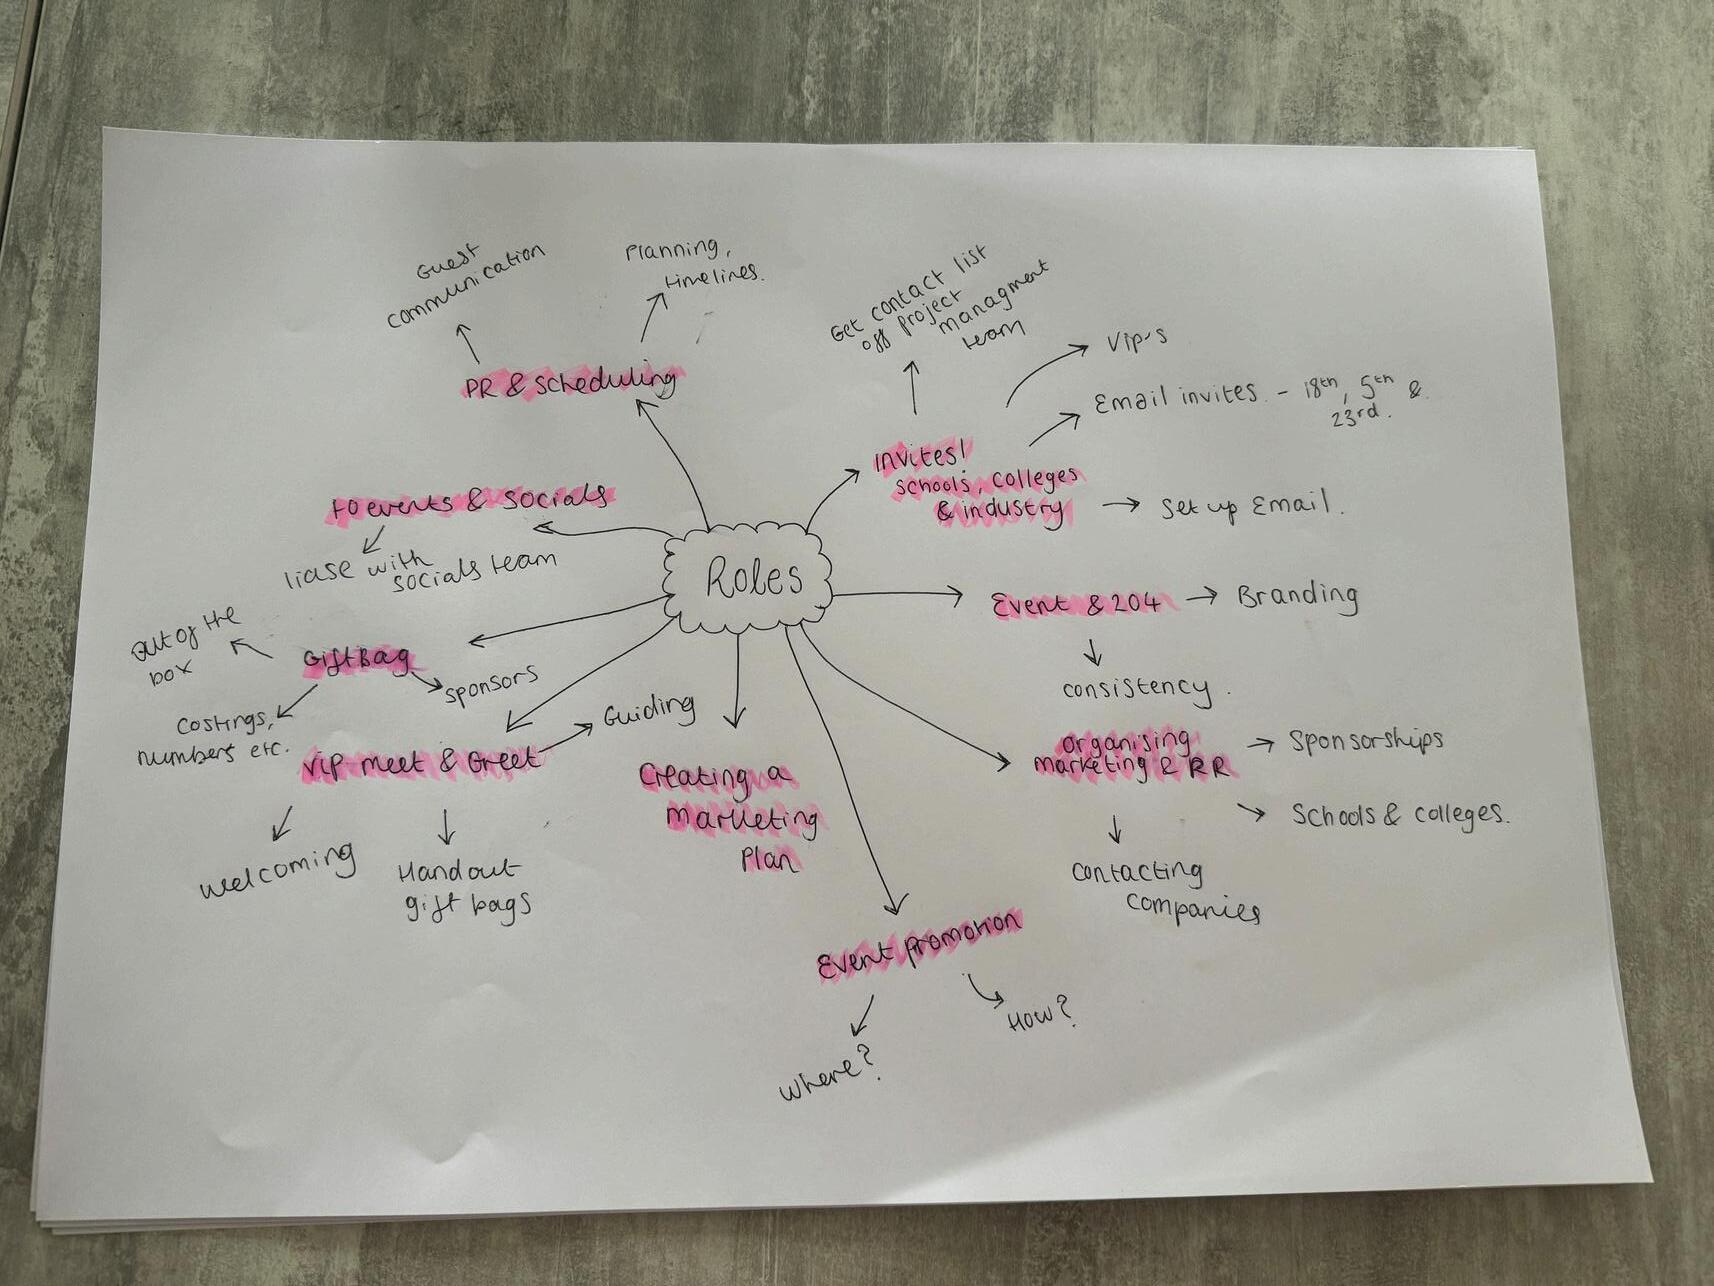 Roles
PR & Scheduling
Guest
communication
Planning,
timelines.
Invites!
schools, colleges
& industry
Get contact list
off project
managment
team
Vip's
Email invites. - 18th, 5th &
23rd.
Set up Email.
Event & 204
Branding
consistency.
organising
marketing & PR
Sponsorships
Schools & colleges.
contacting
companies
Event promotion
How?
Where?
Creating a
marketing
Plan
VIP meet & Greet
Guiding
Handout
gift bags
welcoming
GiftBag
sponsors
Costings,
numbers etc.
out of the
box
events & socials
liase with
socials team